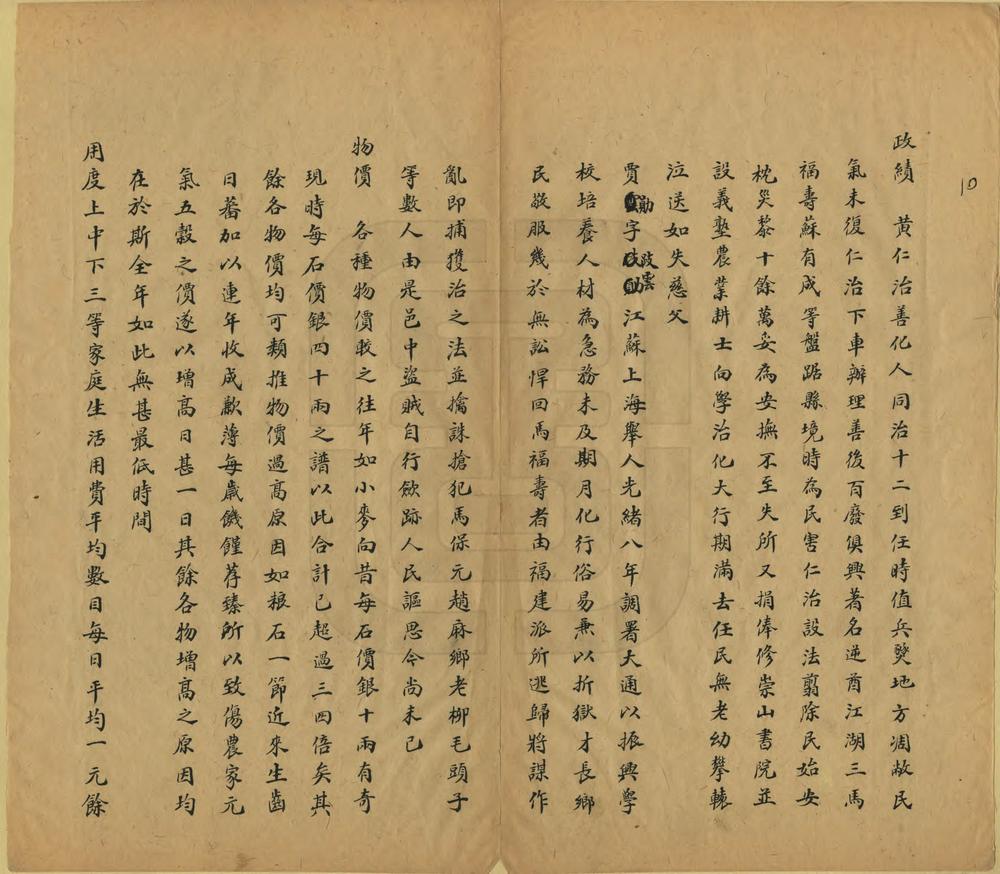 10
政績　黃仁治善化人同治十二到任時值兵燹地方凋敝民
氣未復仁治下車辦理善後百廢俱興著名逆酋江湖三馬
福壽蘇有成等盤踞縣境時為民害仁治設法翦除民始安
枕災黎十餘萬妥為安撫不至失所又捐俸修崇山書院並
設義塾農業耕士向學治化大行期滿去任民無老幼攀轅
泣送如失慈父
賈勛字啟雲江蘇上海舉人光緒八年調署大通以振興學
校培養人材為急務未及期月化行俗易兼以折獄才長鄉
民敬服幾於無訟悍回馬福壽者由福建派所逃歸將謀作
亂即捕獲治之法並擒誅搶犯馬保元趙麻鄉老柳毛頭子
等數人由是邑中盜賊自行歛跡人民謳思令尚未已
物價　各種物價較之往年如小麥向昔每石價銀十兩有奇
現時每石價銀四十兩之譜以此合計已超過三四倍矣其
餘各物價均可類推物價過高原因如粮石一節近來生齒
日蕃加以連年收成歉薄每歲饑饉荐臻所以致傷農家元
氣五穀之價遂以增高日甚一日其餘各物增高之原因均
在於斯全年如此無甚最低時間
用度上中下三等家庭生活用費平均數目每日平均一元餘